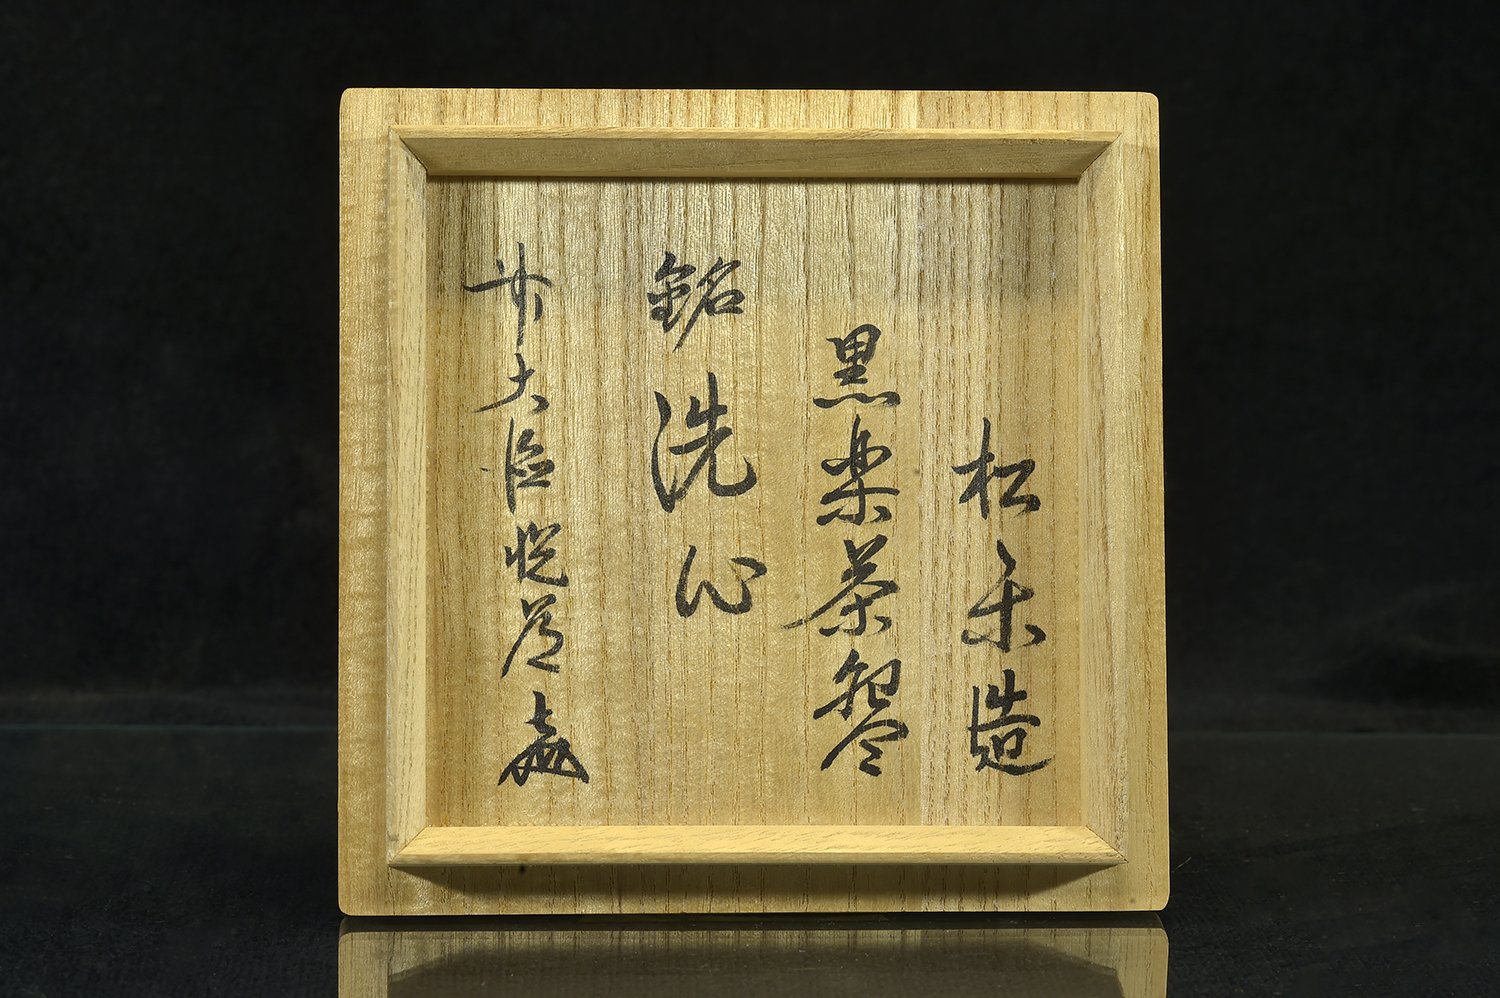 松楽造
黒楽茶盌
銘 洗心
前大徳悦道